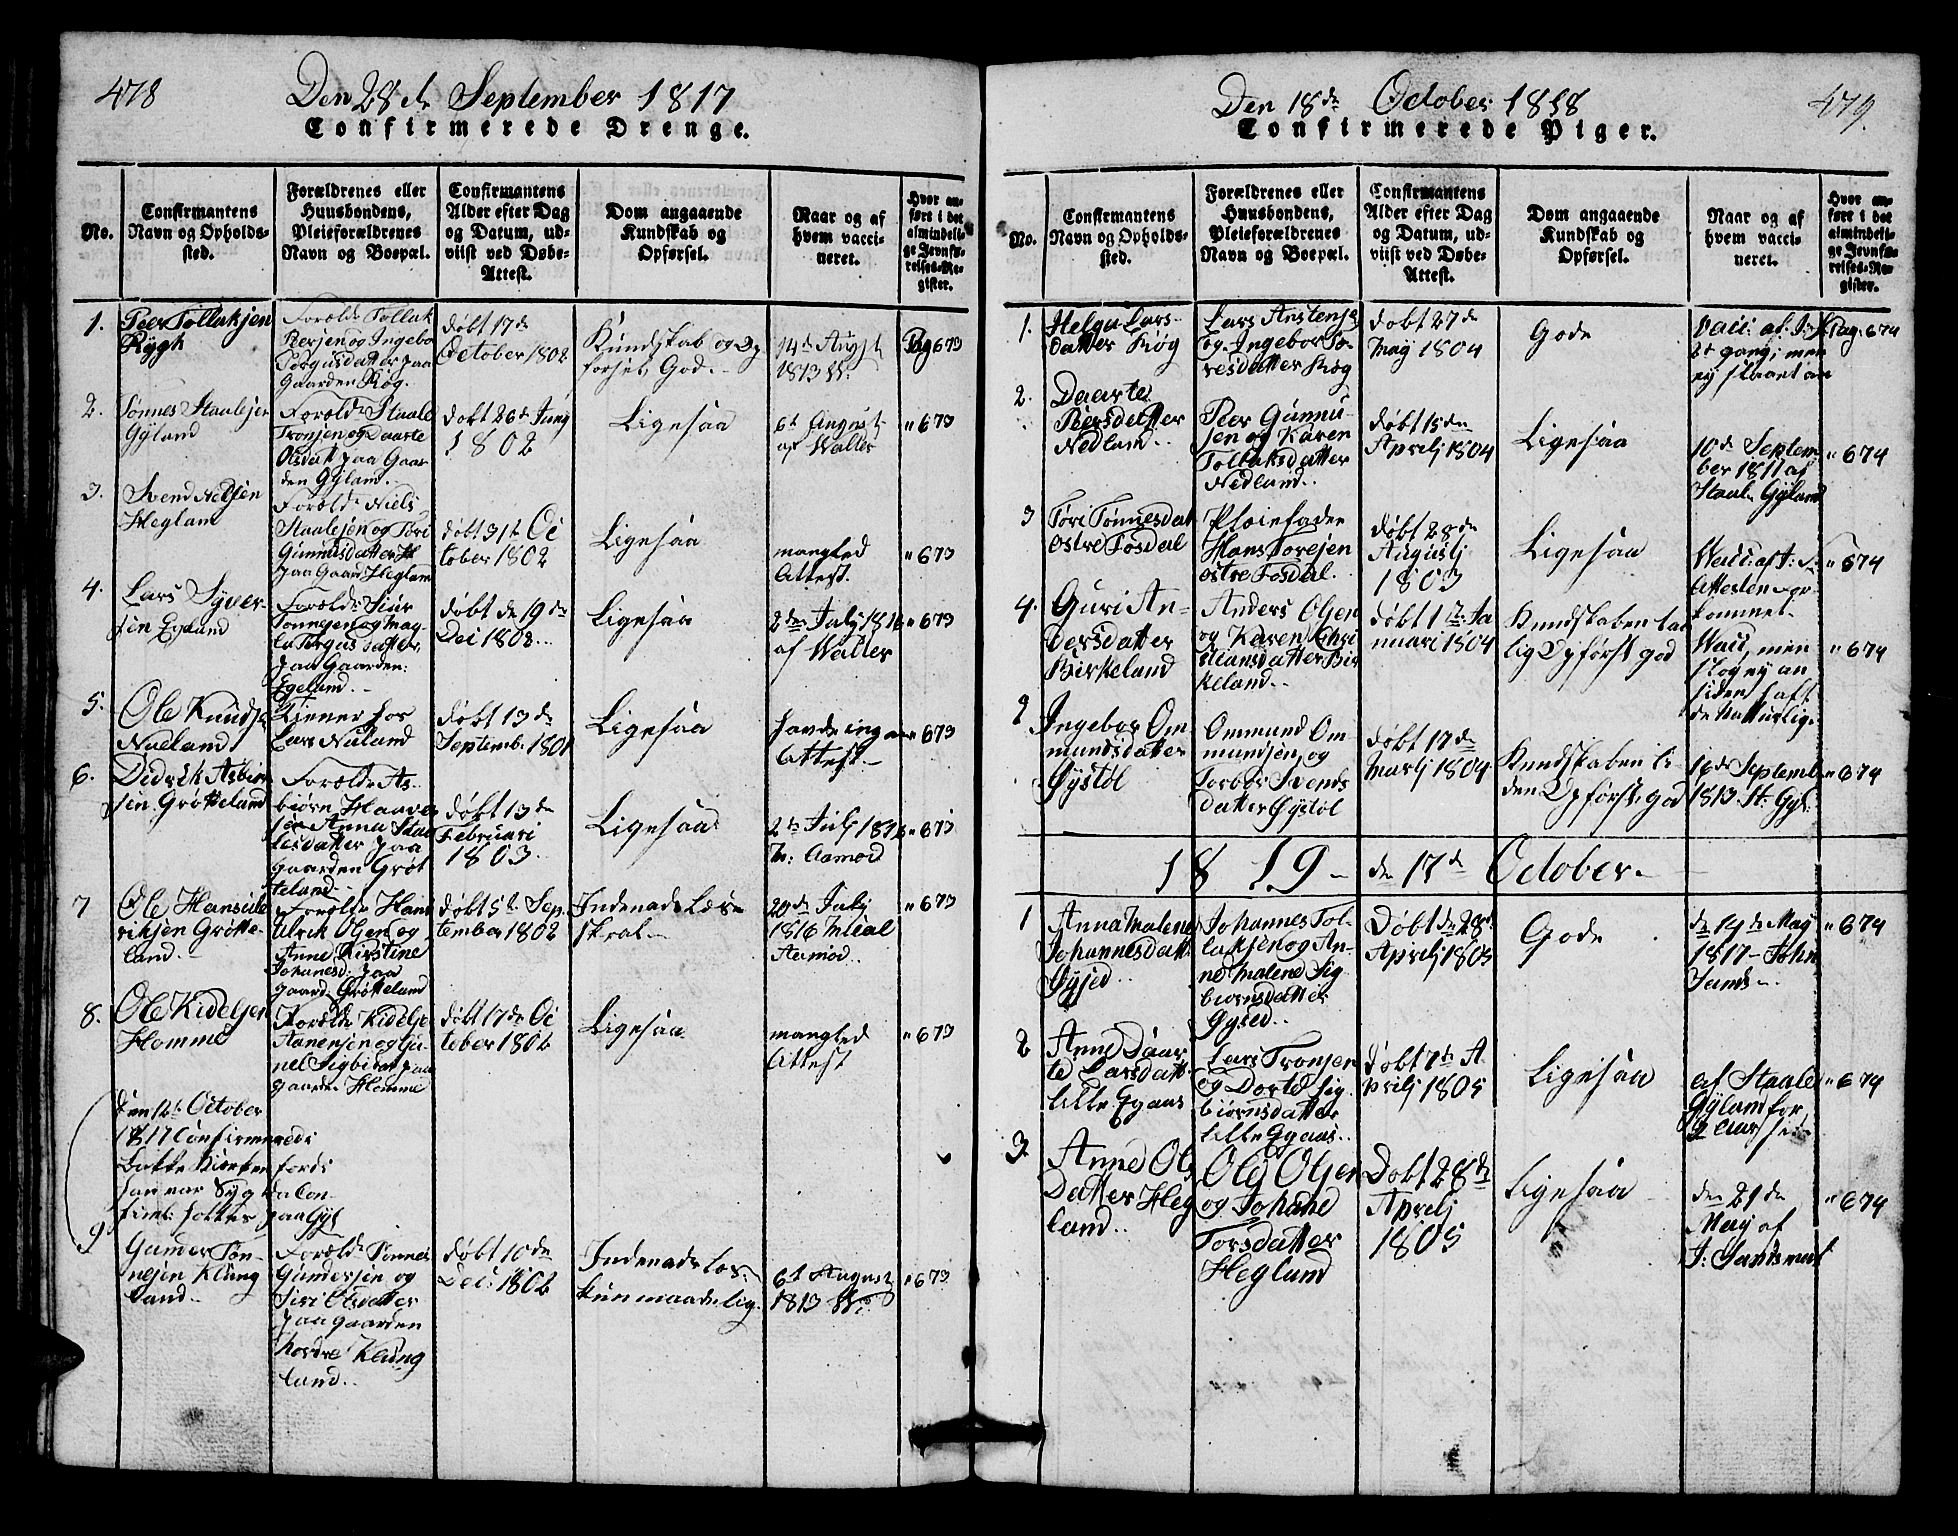 478
Den 28de September 1817
Confirmerede Drenge.
No.
Confirmantens
Navn og Opholds-
sted.
Forældrenes eller
Huusbondens,
Pleieforældrenes
Navn og Boepæl.
Confirmantens
Alder efter Dag
og Datum, ud-
viist ved Døbe-
Attest.
Dom angaaende
Kundskab og
Opførsel.
Naar og af
hvem vacci-
neret.
Hvor an-
ført i det
almindeli-
ge Jevnfø-
relses-Re-
gister.
1.
Peer Tollaksen
Rygh
Foreld. Tollak
Persen og Ingebor
Torgusdatter paa
Gaarden Røg.
døbt 17de
October 1802
Kundskab og Op
førsel God.
14de Augst
1813 W.
Pag 673
2.
Tønnes Staalesen
Gyland
Foreld. Staale
Tronsen og Daarte
Olsdatt. paa Gaar
den Gyland.
døbt 26de Juny
1802
Ligesaa
6t August
af Waller
" 673
3.
Svend Nielsen
Heglam
Foreld. Niels
Staalesen og Tori
Gunnusdatter
paa Gaard Heglam
døbt 31te Oc
tober 1802
Ligesaa
mangled
Attest.
" 673
4.
Lars Syver-
sen Egeland
Foreld. Siur
Tønnesen og Mag-
la Torgusdatter,
paa Gaarden
Egeland.
døbt de 19de
Dec 1802
Ligesaa
2den July 1816
af Waller
" 673
5.
Ole Knuds.
Nueland
Tiener hos
Lars Nuland
døbt 13de
Septemb. 1801
Ligesaa
havde ingen
Attest.
" 673
6.
Didrik Asbiør
sen Grøtteland
Foreld. As-
biørn Haaver
sen Anna Staa
lesdatter paa
gaarden Grøt
teland
døbt 13de
Februari
1803
Ligesaa
2den July 1816
Th: Aamod
" 673
7
Ole Hansule
riksen Grøtte-
land.
Foreld. Hans
Ulrik Olsen og
Anne Kirstine
Johanesd. paa
gaard. Grøtteland
døbt 5te Sep
tember 1802
Indenads Læs-
20de July
1816
Aamod
" 673
8.
Ole Kidelsen
Homme
Foreld. Kidel
Aanensen og Gu-
nel Sigbi dat paa
gaarden Homme
døbt 17de Oc
tober 1802
Ligesaa
mangled
Attest
" 673
Den 12te October
1817 Confirmereds
han var Syg da Con-
paa Gyl
9
Gunder Tøn-
nesen Klung
land
Foreld. Tønnes
Gundersen og
Siri Olsdatter
paa gaarden
Nordre Klung
land.
døbt 10de
Dec: 1802
Indenads Læs-
kun maadelig.
6t August
1813 W.
" 673
Den 18de October 1818
479.
Confirmerede Piger.
No.
Confirmantens
Navn og Opholds-
sted.
Forældrenes eller
Huusbondens,
Pleieforældrenes
Navn og Boepæl.
Confirmantens
Alder efter Dag
og Datum, ud-
viist ved Døbe-
Attest.
Dom angaaende
Kundskab og
Opførsel.
Naar og af
hvem vacci-
neret.
Hvor an-
ført i det
almindeli-
ge Jevnfø-
relses-Re-
gister.
1.
Helga Lars-
datter Røg
Lars Anstensen
og Ingebor To-
resdatter Røg
døbt 27de
May 1804
Gode
Vacc: af
2t gang, men
ey slaaet an
Pag. 674
2.
Daarte
Peersdatter
Nedland.
Peer Gunnu-
sen og Karen
Tollaksdatter
Nedland.
døbt 15den
Aprelj 1804
Ligesaa
10de Septem
ber 1811 af
Staale Gyland
" 674
3
Tori Tønnesdat
østre Tosdal
Pleiefader
Hans Toresen
østre Tosdal.
døbt 28de
Augustj
1803
Ligesaa
Attesten
kommet.
" 674
4.
Guri An-
dersdatter
Birkeland
Anders Olsen
og Karen Chri
stiansdatter Bir
keland.
døbt 1te Ja
nuari 1804
Kundskaben taa
lig Opførsl god
Vacc, men
slog ey an
siden haft
de Naturlige
" 674
Ingebor Om
mundsdatter
Øystøl
Ommund Om
mundsen, og
Torbor Svends
datter Øystøl
døbt 17de
Martj 1804
Kundskaben li-
den Opførsl. god
16de Septemb
1813. St: Gyl.
" 674
1819 - de 17de October.
1
Anna Malene
Johannesdatt.
Gysed
Johannes Tol-
laksen og An-
ne Malene Sig
biørnsdatter
Gysed.
Døbt de 28de
Aprelj 1805
Gode
de 14de May
1817 - John
Sands.
" 674
2
Anne Daar
te Larsdatt.
Lille Egaas
Lars Tronsen
og Dorte Sig
biørnsdatter
Lille Egaas.
døbt 7de A
prelj 1805
Ligesaa
af Staale
Gyland for
2 aar sed
" 674
3.
Anne Ols
Datter Heg
land.
Ole Olsen
og Johane
Torsdatter
Heglund
Døbt 28de
Aprelj
1805
Ligesaa
den 21de
May af
J: Sandsmut
" 674